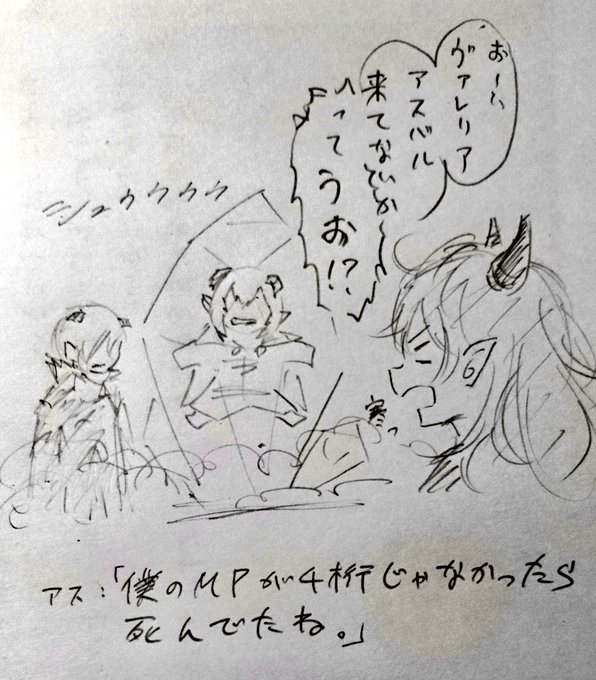 おーい、
ヴァレリア
アスバル
来てないか
ってうお!?
シュウウウウ
寒っ
アス:「僕のMPが4桁じゃなかったら
死んでたね。」